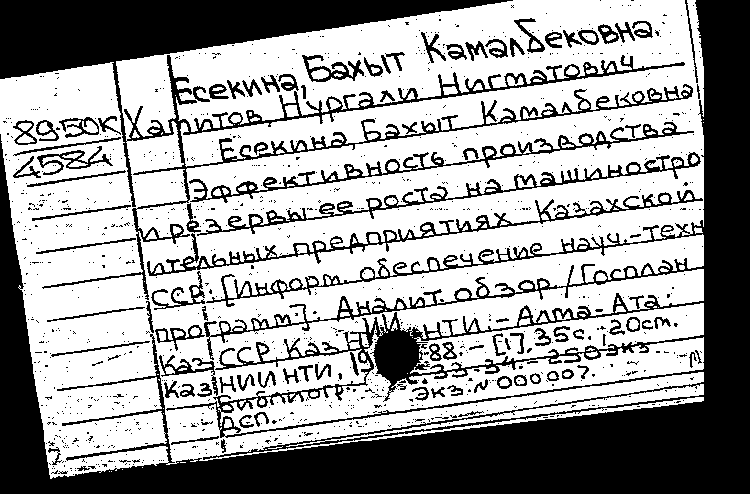 Есекина, Бахыт Камалбековна.
89-50К Хамитов, Нургали Нигматович
4584 Есекина, Бахыт Камалбековна
Эффективность производства
и резервы ее роста на машиностро
ительных предприятиях Казахской
ССР: [Информ. обеспечение науч.-техн
программ]: Аналит. обзор / Госплан
Каз ССР, Каз НИИ НТИ. - Алма-Ата:
Каз НИИ НТИ, 1988. - [1], 35 с.; 20 см.
Библиогр.: с. 33-34. - 250 экз
ДСП. Экз. N 000007.